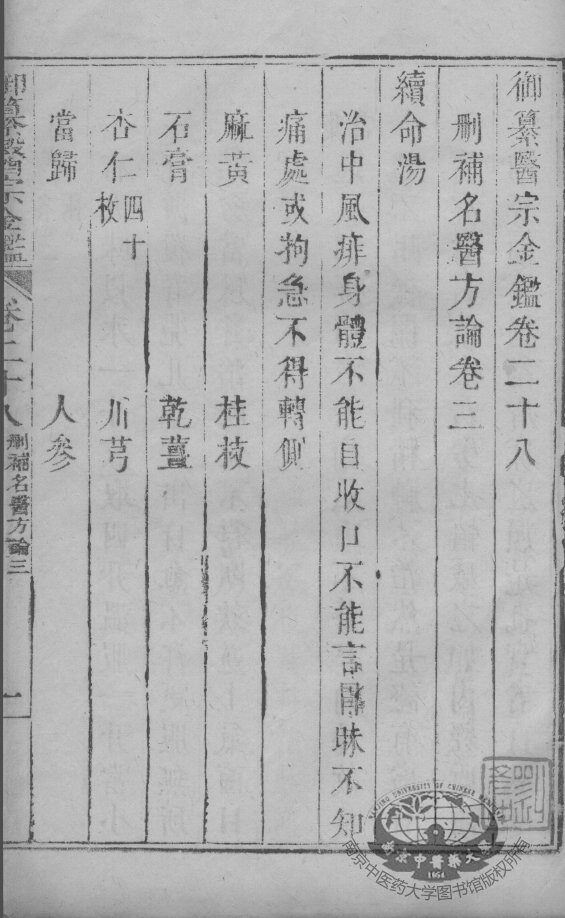 御纂醫宗金鑑卷二十八
刪補名醫方論卷三
續命湯
治中風痱身體不能自收口不能言冒昧不知
痛處或拘急不得轉側
麻黃 桂枝
石膏 乾薑
杏仁四十枚 川芎
當歸 人參
御纂醫宗金鑑 卷二十八 刪補名醫方論三 一
NANJING UNIVERSITY OF CHINESE MEDICINE
南京中醫藥大學
1954
南京中医药大学图书馆版权所有